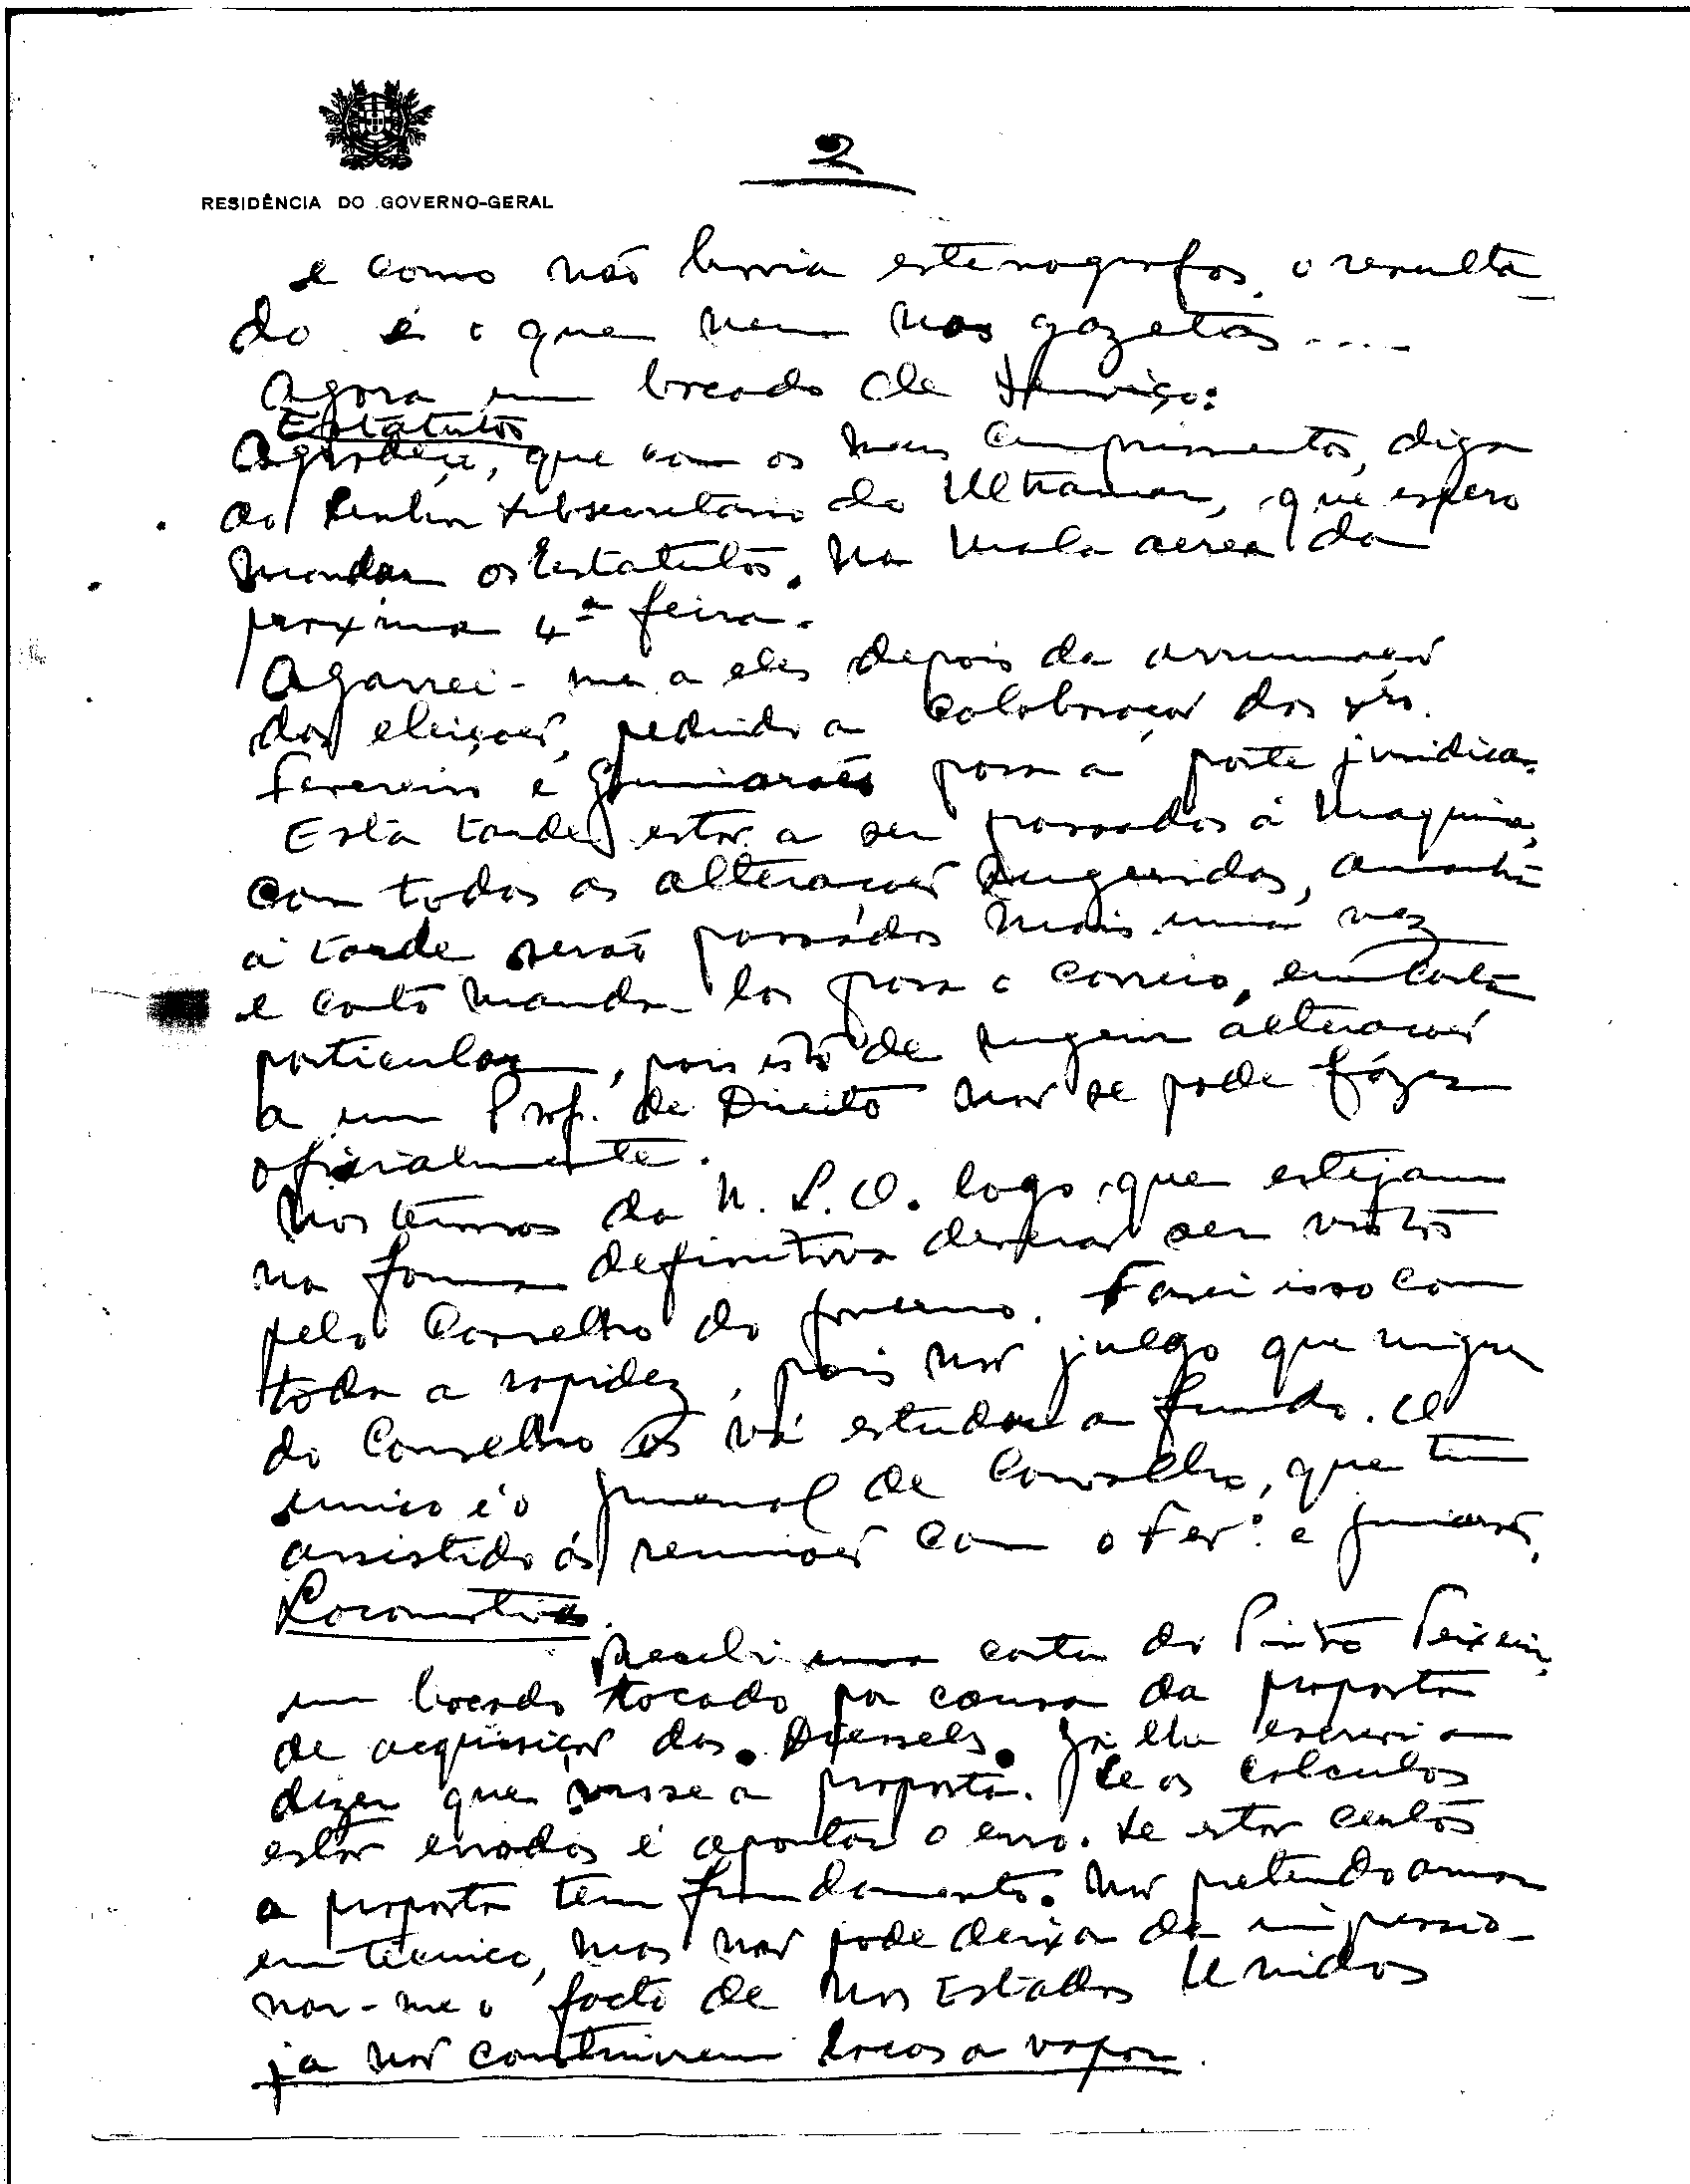 2
RESIDÊNCIA DO GOVERNO-GERAL
e como não havia estenografos, o resulta-
do é o que vem nas gazetas....
Agora um bocado de serviço:
Estatutos
Agradeço, que com os meus cumprimentos, diga
ao Senhor Subsecretario do Ultramar, que espero
mandar os Estatutos, na mala aerea da
proxima 4ª feira.
Agarrei-me a eles depois da arrumação
das eleições, pedindo a colaboração dos srs.
Fevereiro e Guimarães para a parte juridica.
Esta tarde estão a ser passados á maquina,
com todas as alterações sugeridas, amanhã
á tarde serão passados mais uma vez
e conto manda-los para o correio, em carta
particular, pois isto de sugerir alterações
a um Prof. de Direito não se pode fázer
oficialmente.
Nos termos da N. L. O. logo que estejam
na forma definitiva deverão ser vistos
pelo Conselho do Governo. Farei isso com
toda a rapidez, pois não julgo que ninguem
do Conselho os vá estudar a fundo. O
unico é o Juvenal de Carvalho, que tem
assistido ás reuniões com o Fev.º e Guimarães.
Locomotivas.
Recebi uma carta do Pinto Teixeira,
um bocado tocado por causa da proposta
de acquisição das Diesels. Já lhe escrevi a
dizer que visse a proposta. Se os calculos
estão errados é apontar o erro. Se estão certos
a proposta tem fundamento. Não pretendo armar
em tecnico, mas não pode deixar de impressio-
nar-me o facto de nos Estados Unidos
já não construirem locos a vapor.